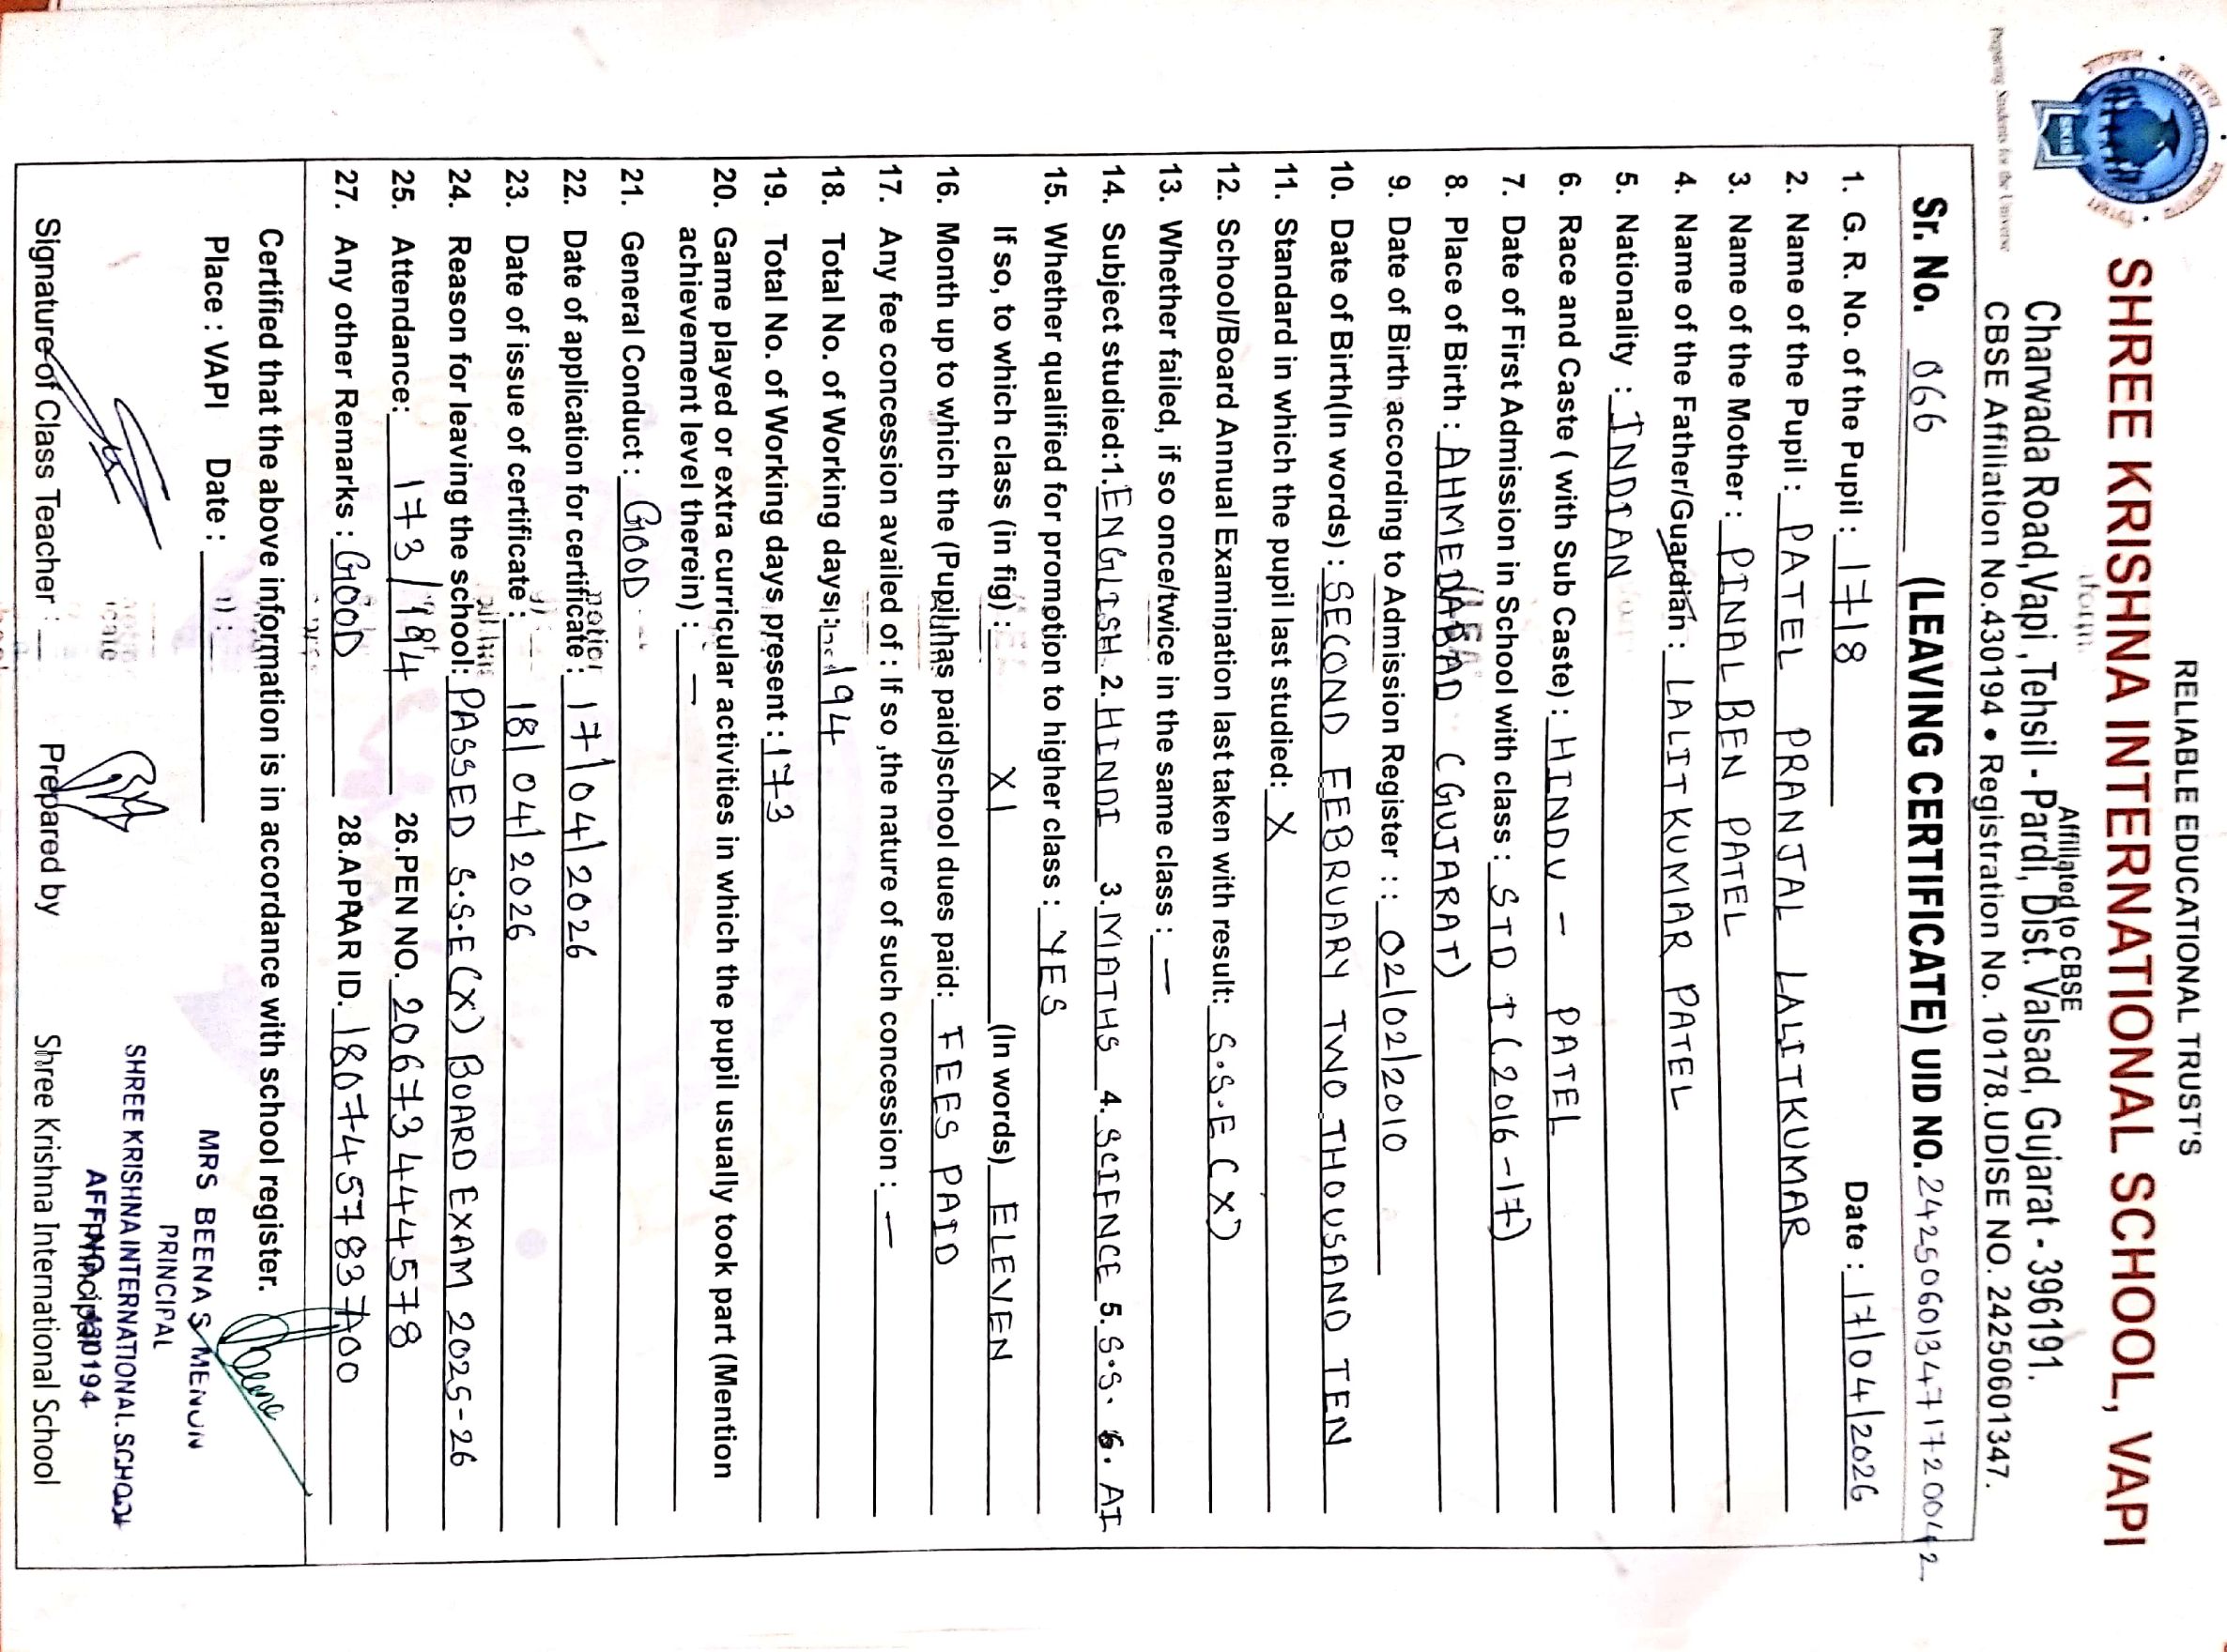 RELIABLE EDUCATIONAL TRUST'S
SHREE KRISHNA INTERNATIONAL SCHOOL, VAPI
Affiliated to CBSE
Charwada Road,Vapi ,Tehsil - Pardi, Dist. Valsad, Gujarat - 396191.
CBSE Affiliation No.430194 • Registration No. 10178.UDISE NO. 24250601347.
Preparing Students for the Universe
SKIS
Sr. No. 066 (LEAVING CERTIFICATE) UID NO.242506013471720042
1. G. R. No. of the Pupil : 1718 Date : 17/04/2026
2. Name of the Pupil : PATEL PRANJAL LALITKUMAR
3. Name of the Mother : PINAL BEN PATEL
4. Name of the Father/Guardian : LALITKUMAR PATEL
5. Nationality : INDIAN
6. Race and Caste ( with Sub Caste) : HINDU - PATEL
7. Date of First Admission in School with class : STD I (2016-17)
8. Place of Birth : AHMEDABAD (GUJARAT)
9. Date of Birth according to Admission Register :: 02/02/2010
10. Date of Birth(In words) : SECOND FEBRUARY TWO THOUSAND TEN
11. Standard in which the pupil last studied: X
12. School/Board Annual Examination last taken with result: S.S.E (X)
13. Whether failed, if so once/twice in the same class : —
14. Subject studied:1.ENGLISH 2.HINDI 3.MATHS 4.SCIENCE 5.S.S. 6. AI
15. Whether qualified for promotion to higher class : YES
If so, to which class (in fig) : XI (In words) ELEVEN
16. Month up to which the (Pupil has paid)school dues paid: FEES PAID
17. Any fee concession availed of : If so ,the nature of such concession : —
18. Total No. of Working days: 194
19. Total No. of Working days present : 173
20. Game played or extra curricular activities in which the pupil usually took part (Mention
achievement level therein) : —
21. General Conduct : GOOD
22. Date of application for certificate : 17/04/2026
23. Date of issue of certificate : 18/04/2026
24. Reason for leaving the school: PASSED S.S.E (X) BOARD EXAM 2025-26
25. Attendance: 173/194 26.PEN NO. 20673444578
27. Any other Remarks : GOOD 28.APPAR ID. 180745783700
Certified that the above information is in accordance with school register.
Place : VAPI Date :
MRS BEENA S MENON
PRINCIPAL
SHREE KRISHNA INTERNATIONAL SCHOOL
AFF NO 430194
Principal
Signature of Class Teacher : Prepared by Shree Krishna International School